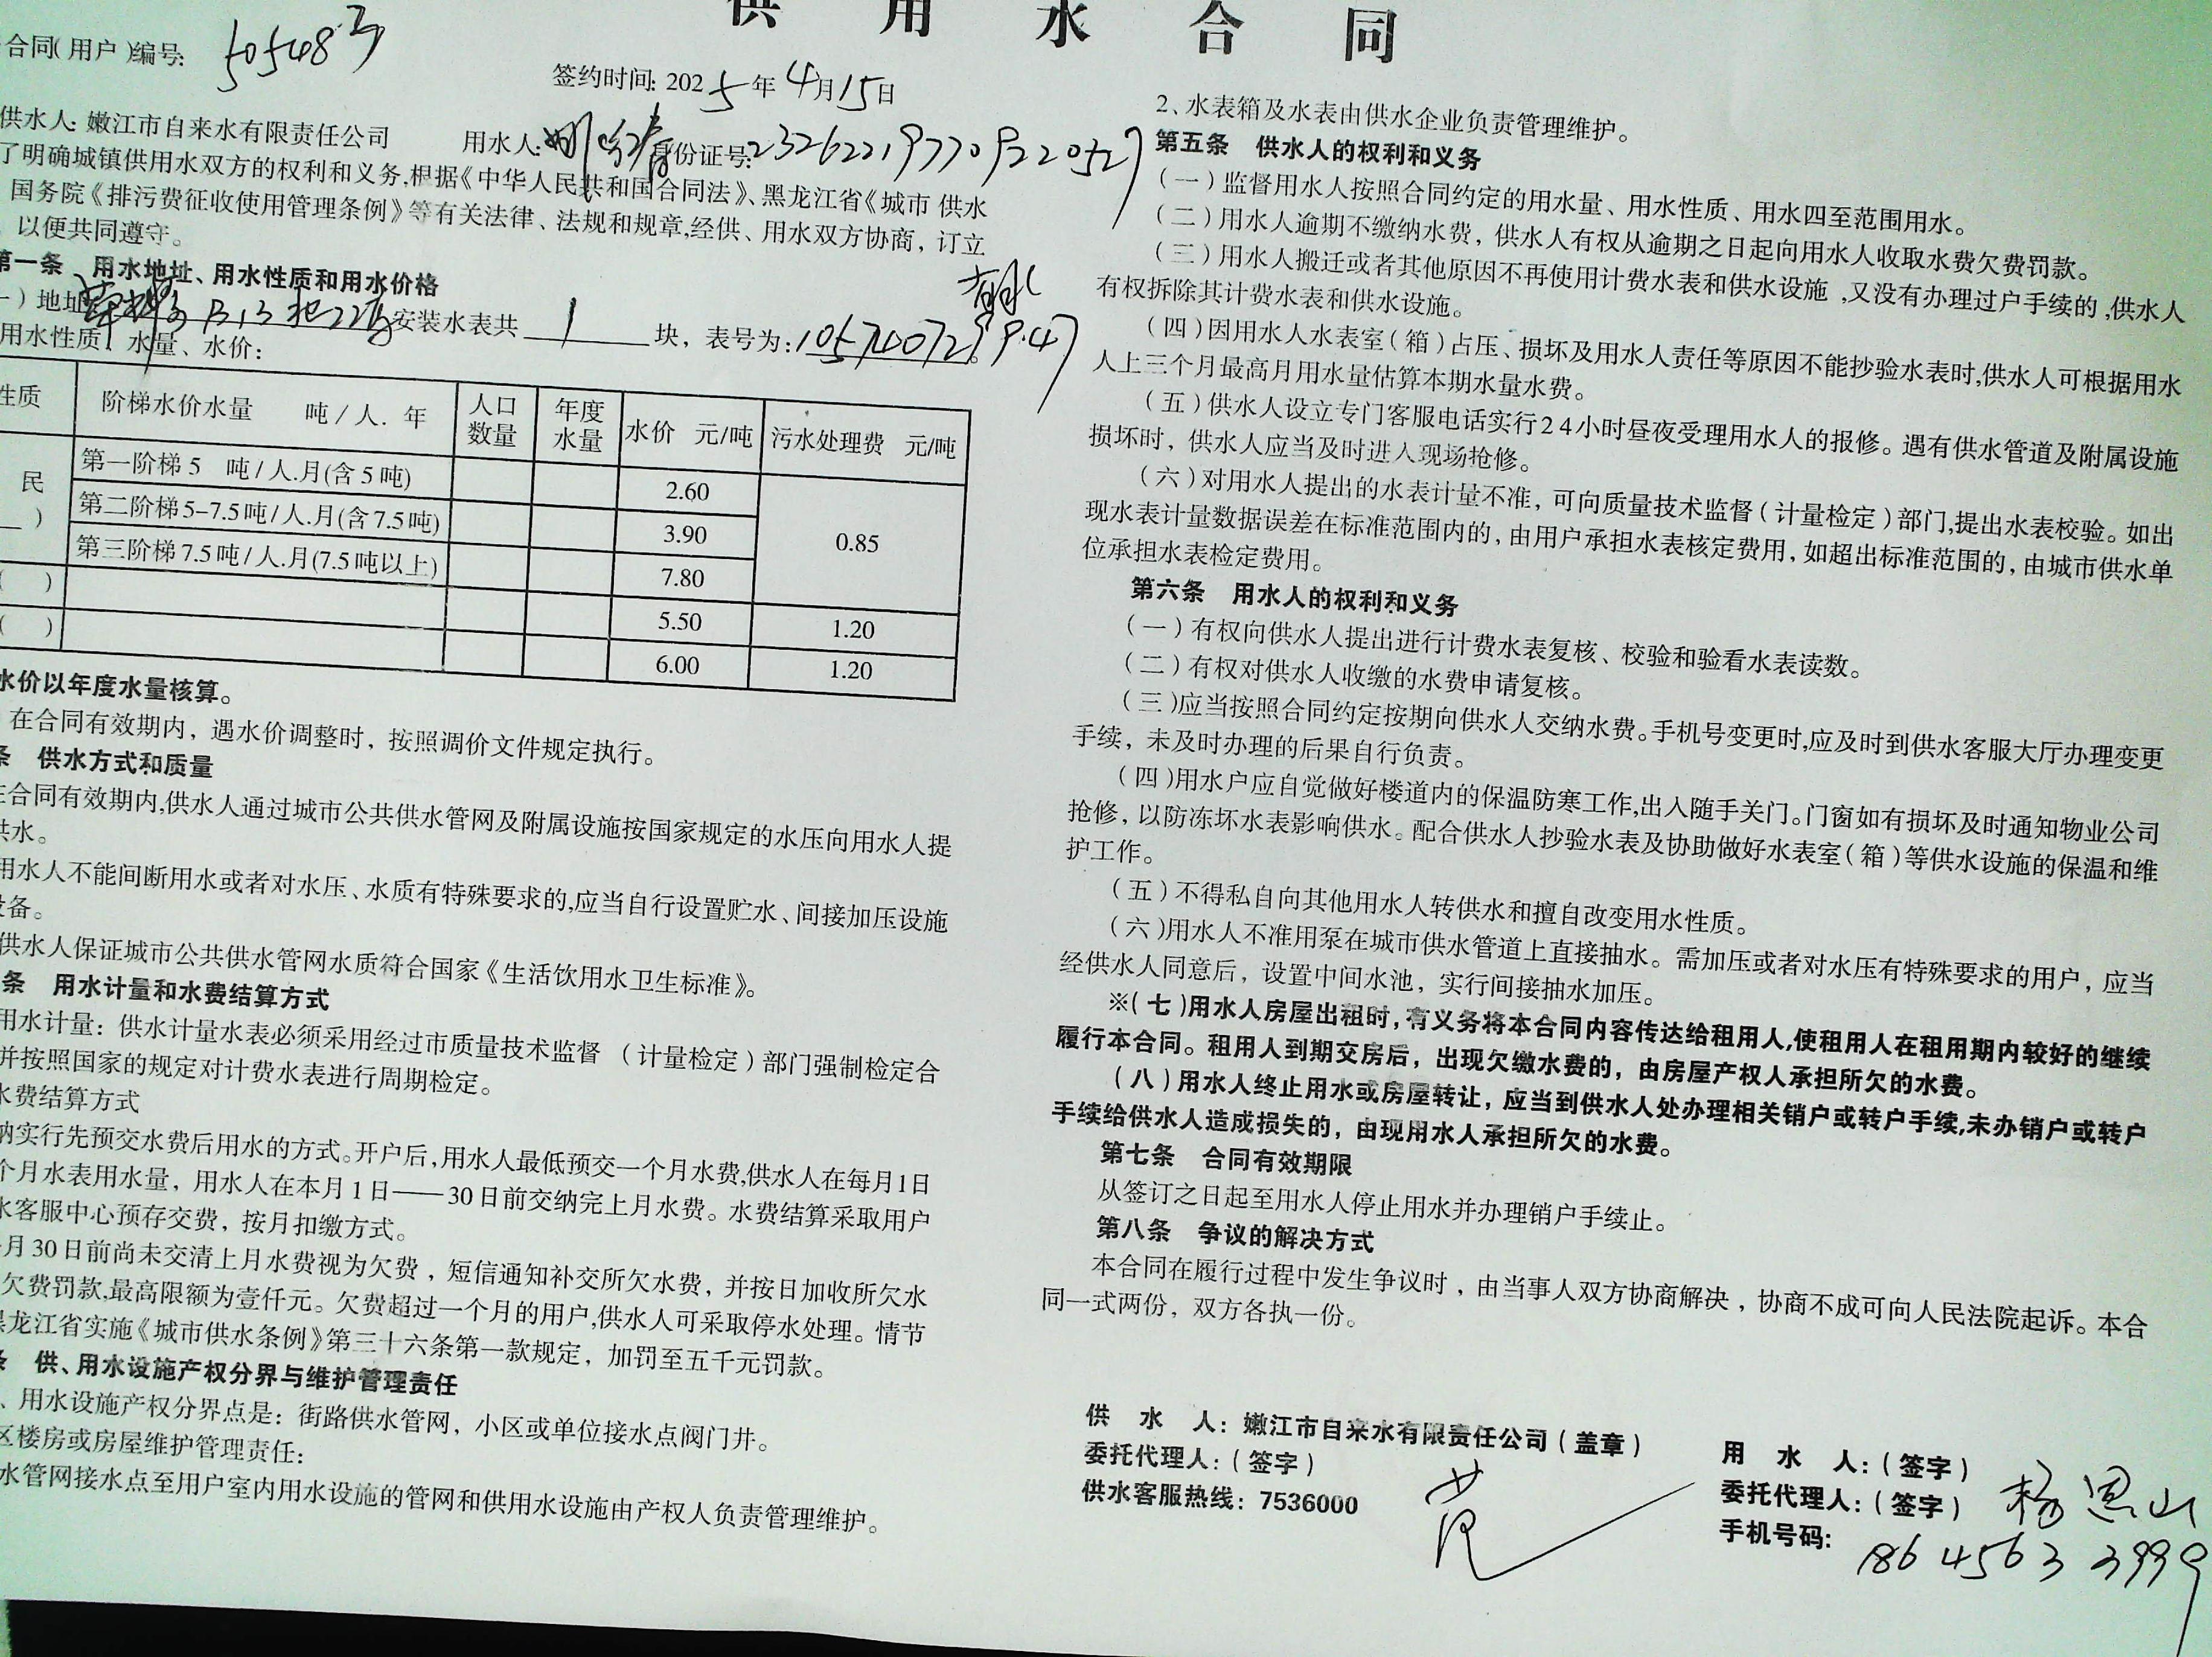 供 用 水 合 同
合同(用户)编号: 505483
签约时间: 2025年4月15日
供水人: 嫩江市自来水有限责任公司 用水人: 身份证号:
了明确城镇供用水双方的权利和义务,根据《中华人民共和国合同法》、黑龙江省《城市 供水
国务院《排污费征收使用管理条例》等有关法律、法规和规章,经供、用水双方协商，订立
以便共同遵守。
第一条 用水地址、用水性质和用水价格
一)地址 安装水表共 1 块，表号为:
用水性质、水量、水价:
性质 阶梯水价水量 吨/人.年 人口数量 年度水量 水价 元/吨 污水处理费 元/吨
民 第一阶梯5 吨/人.月(含5吨) 2.60 0.85
第二阶梯5-7.5吨/人.月(含7.5吨) 3.90
第三阶梯7.5吨/人.月(7.5吨以上) 7.80
( ) 5.50 1.20
( ) 6.00 1.20
水价以年度水量核算。
在合同有效期内，遇水价调整时，按照调价文件规定执行。
条 供水方式和质量
在合同有效期内,供水人通过城市公共供水管网及附属设施按国家规定的水压向用水人提
供水。
用水人不能间断用水或者对水压、水质有特殊要求的,应当自行设置贮水、间接加压设施
设备。
供水人保证城市公共供水管网水质符合国家《生活饮用水卫生标准》。
条 用水计量和水费结算方式
用水计量: 供水计量水表必须采用经过市质量技术监督 (计量检定)部门强制检定合
并按照国家的规定对计费水表进行周期检定。
水费结算方式
纳实行先预交水费后用水的方式。开户后,用水人最低预交一个月水费,供水人在每月1日
个月水表用水量，用水人在本月1日——30日前交纳完上月水费。水费结算采取用户
水客服中心预存交费，按月扣缴方式。
月30日前尚未交清上月水费视为欠费，短信通知补交所欠水费，并按日加收所欠水
欠费罚款,最高限额为壹仟元。欠费超过一个月的用户,供水人可采取停水处理。情节
黑龙江省实施《城市供水条例》第三十六条第一款规定，加罚至五千元罚款。
条 供、用水设施产权分界与维护管理责任
、用水设施产权分界点是: 街路供水管网，小区或单位接水点阀门井。
区楼房或房屋维护管理责任:
水管网接水点至用户室内用水设施的管网和供用水设施由产权人负责管理维护。
2、水表箱及水表由供水企业负责管理维护。
第五条 供水人的权利和义务
(一)监督用水人按照合同约定的用水量、用水性质、用水四至范围用水。
(二)用水人逾期不缴纳水费，供水人有权从逾期之日起向用水人收取水费欠费罚款。
(三)用水人搬迁或者其他原因不再使用计费水表和供水设施,又没有办理过户手续的,供水人
有权拆除其计费水表和供水设施。
(四)因用水人水表室(箱)占压、损坏及用水人责任等原因不能抄验水表时,供水人可根据用水
人上三个月最高月用水量估算本期水量水费。
(五)供水人设立专门客服电话实行24小时昼夜受理用水人的报修。遇有供水管道及附属设施
损坏时，供水人应当及时进入现场抢修。
(六)对用水人提出的水表计量不准，可向质量技术监督(计量检定)部门,提出水表校验。如出
现水表计量数据误差在标准范围内的，由用户承担水表核定费用，如超出标准范围的，由城市供水单
位承担水表检定费用。
第六条 用水人的权利和义务
(一)有权向供水人提出进行计费水表复核、校验和验看水表读数。
(二)有权对供水人收缴的水费申请复核。
(三)应当按照合同约定按期向供水人交纳水费。手机号变更时,应及时到供水客服大厅办理变更
手续，未及时办理的后果自行负责。
(四)用水户应自觉做好楼道内的保温防寒工作,出入随手关门。门窗如有损坏及时通知物业公司
抢修，以防冻坏水表影响供水。配合供水人抄验水表及协助做好水表室(箱)等供水设施的保温和维
护工作。
(五)不得私自向其他用水人转供水和擅自改变用水性质。
(六)用水人不准用泵在城市供水管道上直接抽水。需加压或者对水压有特殊要求的用户，应当
经供水人同意后，设置中间水池，实行间接抽水加压。
※(七)用水人房屋出租时,有义务将本合同内容传达给租用人,使租用人在租用期内较好的继续
履行本合同。租用人到期交房后，出现欠缴水费的，由房屋产权人承担所欠的水费。
(八)用水人终止用水或房屋转让，应当到供水人处办理相关销户或转户手续,未办销户或转户
手续给供水人造成损失的，由现用水人承担所欠的水费。
第七条 合同有效期限
从签订之日起至用水人停止用水并办理销户手续止。
第八条 争议的解决方式
本合同在履行过程中发生争议时，由当事人双方协商解决，协商不成可向人民法院起诉。本合
同一式两份，双方各执一份。
供 水 人: 嫩江市自来水有限责任公司(盖章)
委托代理人:(签字)
供水客服热线: 7536000
用 水 人:(签字)
委托代理人:(签字) 杨恩山
手机号码: 18645633999